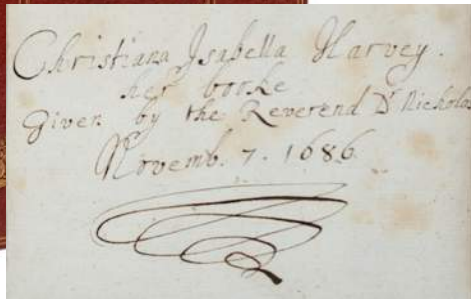 Christiana Isabella Harvey.
her booke
Given by the Reverend Dr Nicholas
Novemb. 7. 1686.